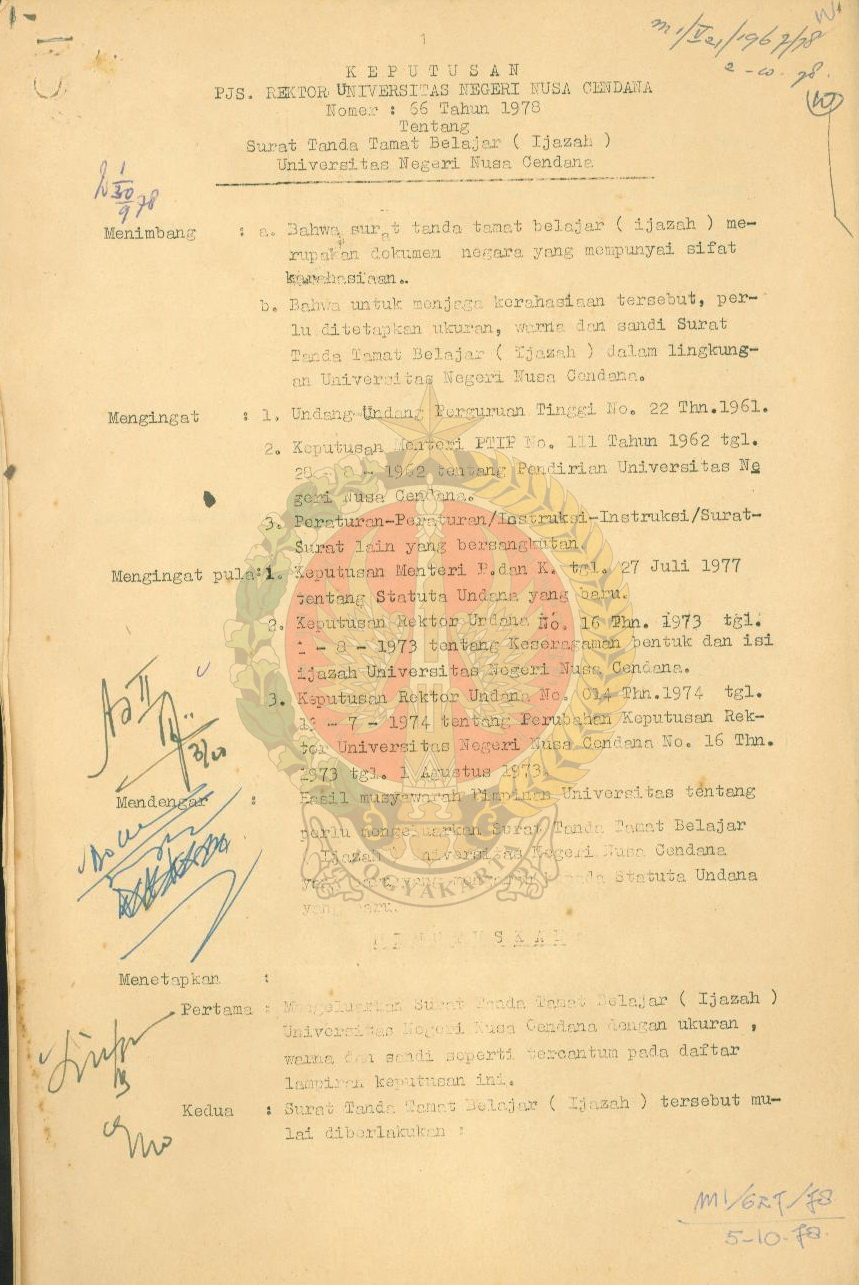 1
m1/V21/1967/78
2-10-78.
K E P U T U S A N
PJS. REKTOR UNIVERSITAS NEGERI NUSA CENDANA
Nomer : 66 Tahun 1978
Tentang
Surat Tanda Tamat Belajar ( Ijazah )
Universitas Negeri Nusa Cendana
Menimbang : a. Bahwa surat tanda tamat belajar ( ijazah ) me-
rupakan dokumen negara yang mempunyai sifat
karahasiaan.
b. Bahwa untuk menjaga kerahasiaan tersebut, per-
lu ditetapkan ukuran, warna dan sandi Surat
Tanda Tamat Belajar ( Ijazah ) dalam lingkung-
an Universitas Negeri Nusa Cendana.
Mengingat : 1. Undang-Undang Perguruan Tinggi No. 22 Thn.1961.
2. Keputusan Menteri PTIP No. 111 Tahun 1962 tgl.
1962 tentang Pendirian Universitas Ne
geri Nusa Cendana.
3. Peraturan-Peraturan/Instruksi-Instruksi/Surat-
Surat lain yang bersangkutan.
Mengingat pula: 1. Keputusan Menteri P.dan K. tgl. 27 Juli 1977
tentang Statuta Undana yang baru.
2. Keputusan Rektor Undana No. 16 Thn. 1973 tgl.
1 - 8 - 1973 tentang Keseragaman bentuk dan isi
ijazah Universitas Negeri Nusa Cendana.
3. Keputusan Rektor Undana No. 014 Thn.1974 tgl.
- 7 - 1974 tentang Perubahan Keputusan Rek-
tor Universitas Negeri Nusa Cendana No. 16 Thn.
1973 tgl. 1 Agustus 1973.
Mendengar : Hasil musyawarah Pimpinan Universitas tentang
perlu mengeluarkan Surat Tanda Tamat Belajar
( Ijazah ) Universitas Negeri Nusa Cendana
Statuta Undana
yang baru.
YOGYAKARTA
M E M U T U S K A N
Menetapkan :
Pertama : Mengeluarkan Surat Tanda Tamat Belajar ( Ijazah )
Universitas Negeri Nusa Cendana dengan ukuran ,
warna dan sandi seperti tercantum pada daftar
lampiran keputusan ini.
Kedua : Surat Tanda Tamat Belajar ( Ijazah ) tersebut mu-
lai diberlakukan :
5-10-78.